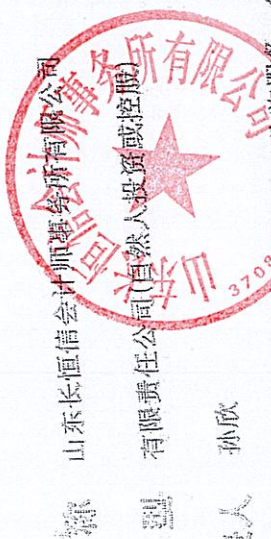 称 山东长恒信会计师事务所有限公司
型 有限责任公司(自然人投资或控股)
人 孙欣
山东长恒信会计师事务所有限公司
3708